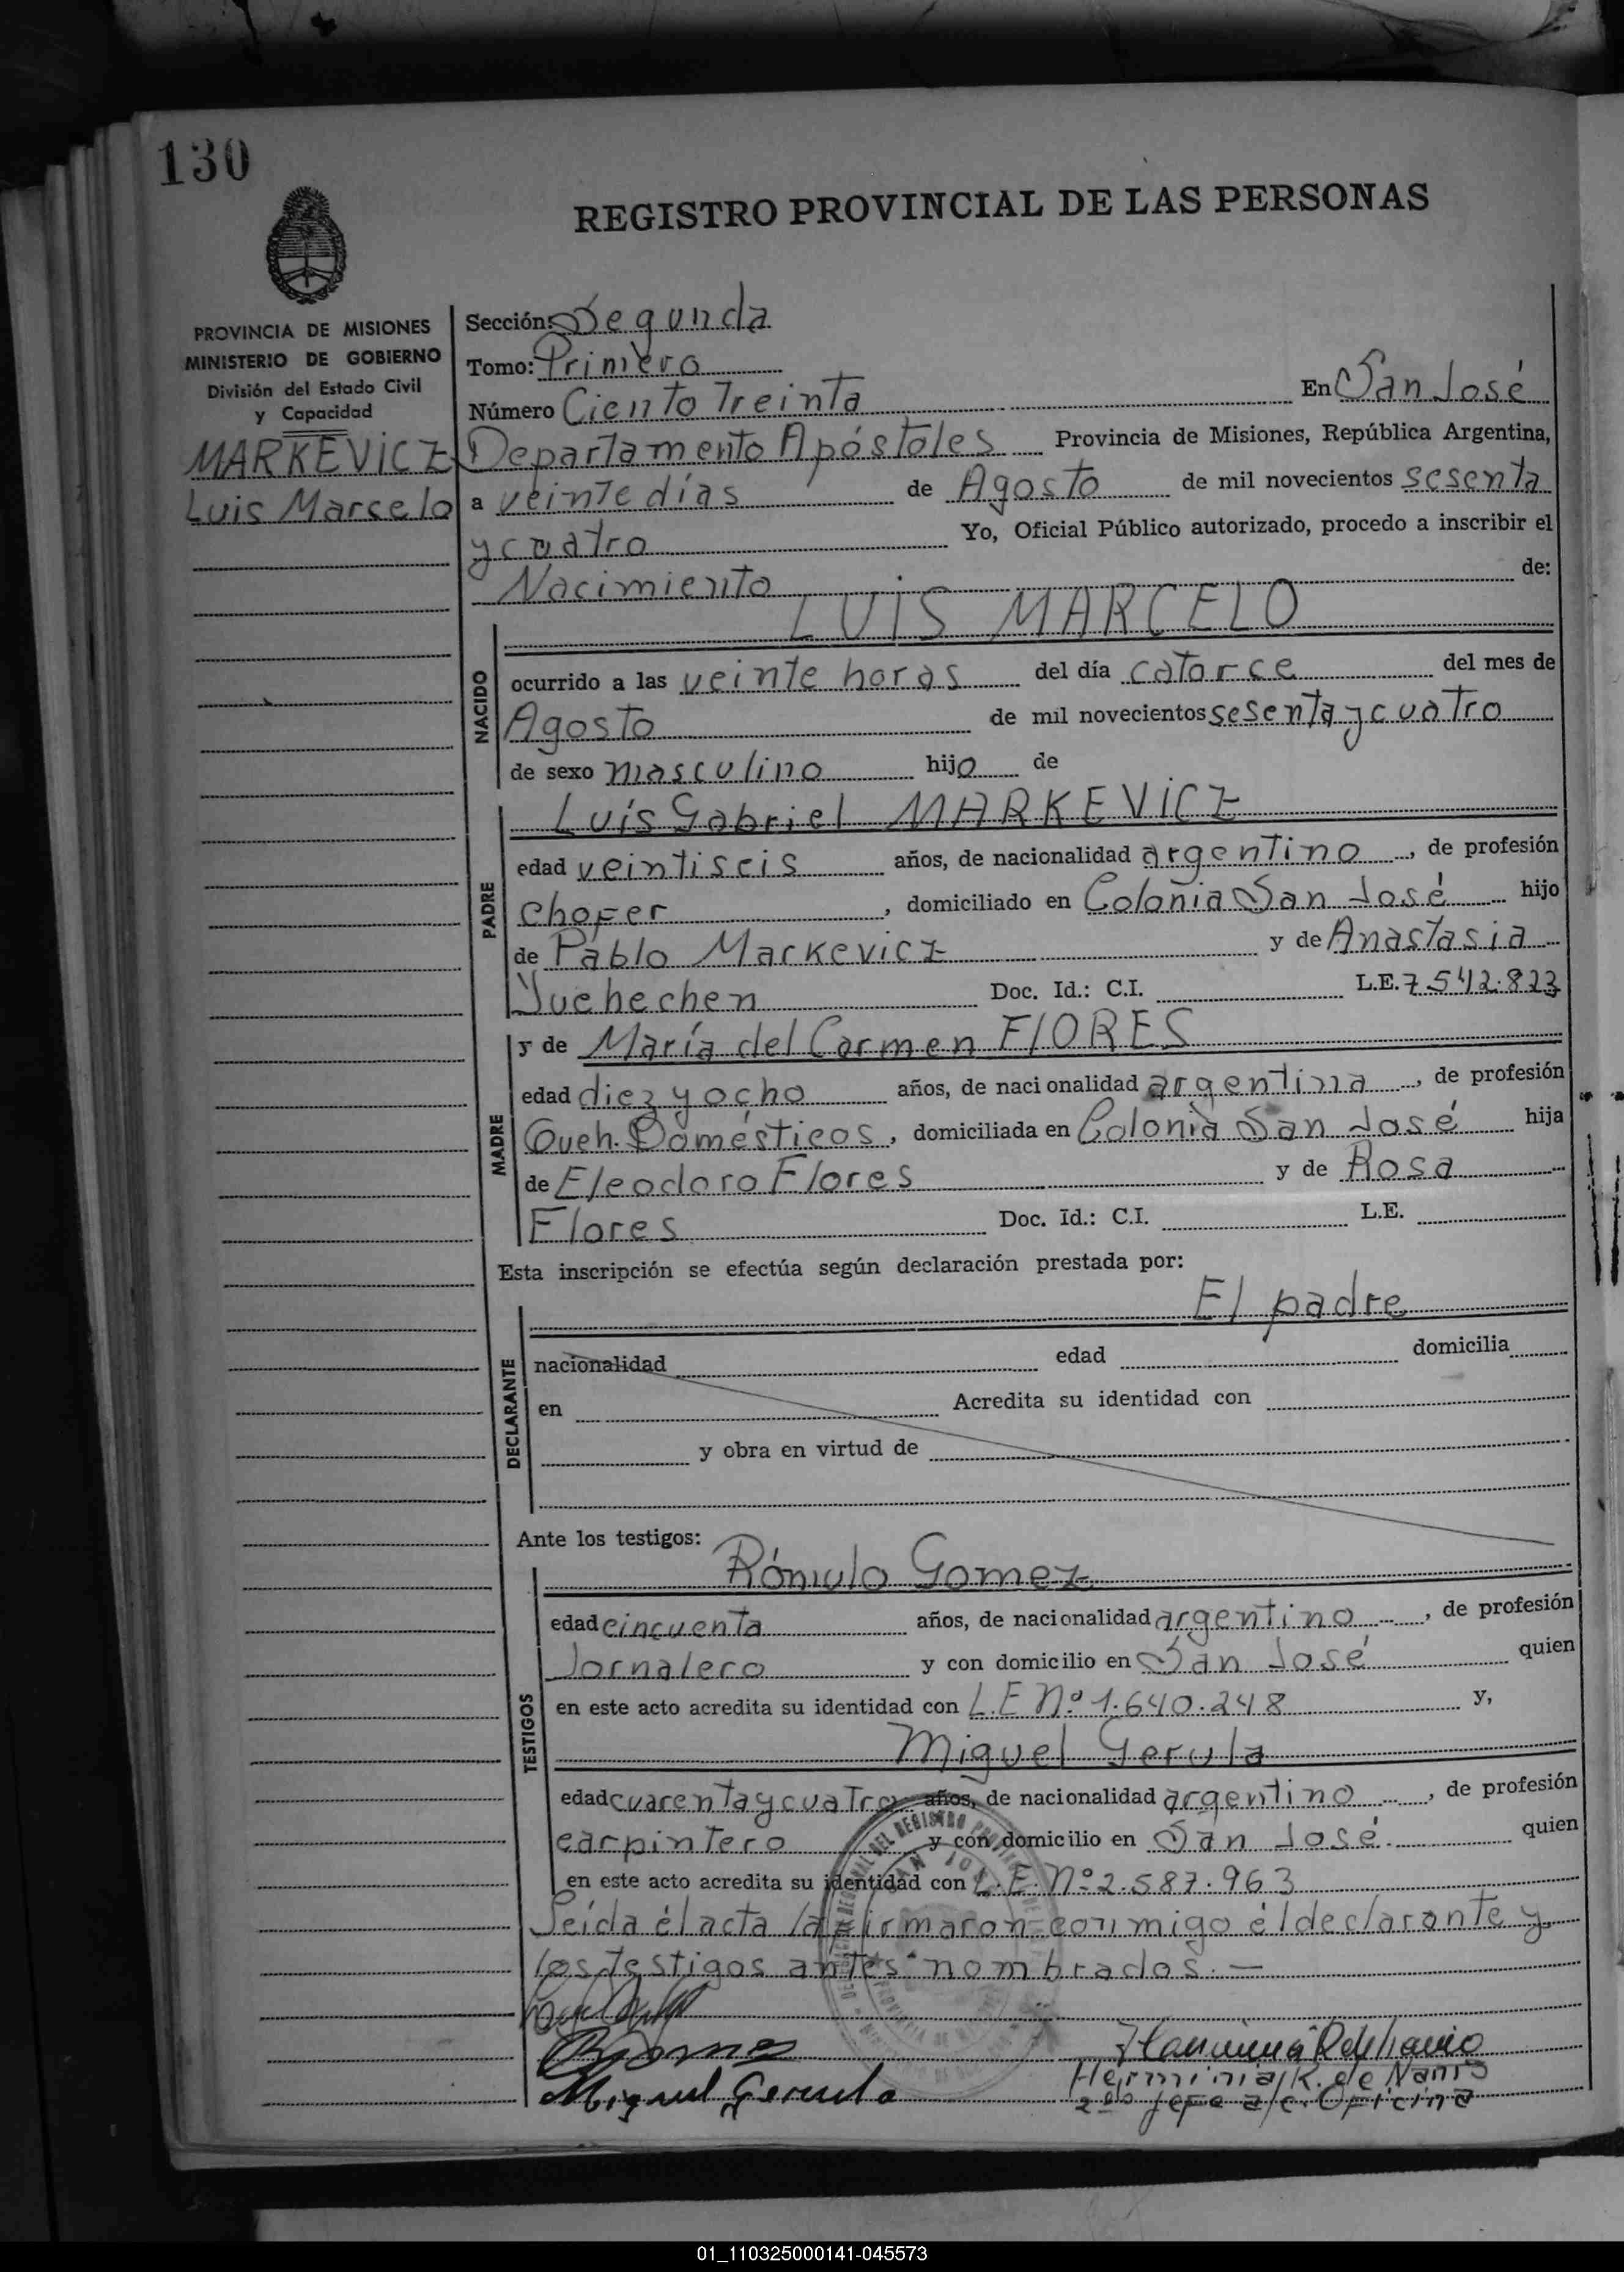 130
REGISTRO PROVINCIAL DE LAS PERSONAS
PROVINCIA DE MISIONES
MINISTERIO DE GOBIERNO
División del Estado Civil
y Capacidad
MARKEVICZ
Luis Marcelo
Sección: Segunda
Tomo: Primero
Número Ciento Treinta En San José
Departamento Apóstoles Provincia de Misiones, República Argentina,
a veinte días de Agosto de mil novecientos sesenta
y cuatro Yo, Oficial Público autorizado, procedo a inscribir el
Nacimiento de:
LUIS MARCELO
NACIDO
ocurrido a las veinte horas del día catorce del mes de
Agosto de mil novecientos sesenta y cuatro
de sexo masculino hijo de
PADRE
Luis Gabriel MARKEVICZ
edad veintiseis años, de nacionalidad argentino, de profesión
chofer, domiciliado en Colonia San José hijo
de Pablo Markevicz y de Anastasia
Juchechen Doc. Id.: C.I. L.E. 7.542.823
MADRE
y de María del Carmen FlORES
edad diez y ocho años, de nacionalidad argentina, de profesión
Queh. Domésticos, domiciliada en Colonia San José hija
de Eleodoro Flores y de Rosa
Flores Doc. Id.: C.I. L.E.
Esta inscripción se efectúa según declaración prestada por:
El padre
DECLARANTE
nacionalidad edad domicilia
en Acredita su identidad con
y obra en virtud de
Ante los testigos:
TESTIGOS
Rómulo Gomez
edad cincuenta años, de nacionalidad argentino, de profesión
Jornalero y con domicilio en San José quien
en este acto acredita su identidad con L.E Nº 1.640.248 y,
Miguel Gerula
edad cuarenta y cuatro años, de nacionalidad argentino, de profesión
carpintero y con domicilio en San José. quien
en este acto acredita su identidad con L.E. Nº 2.587.963
Leída él acta la firmaron conmigo él declarante y
los testigos antes nombrados.—
RGomez
Miguel Gerula
Herminia R. de Nanio
2do Jefe a/c. Oficina
01_110325000141-045573